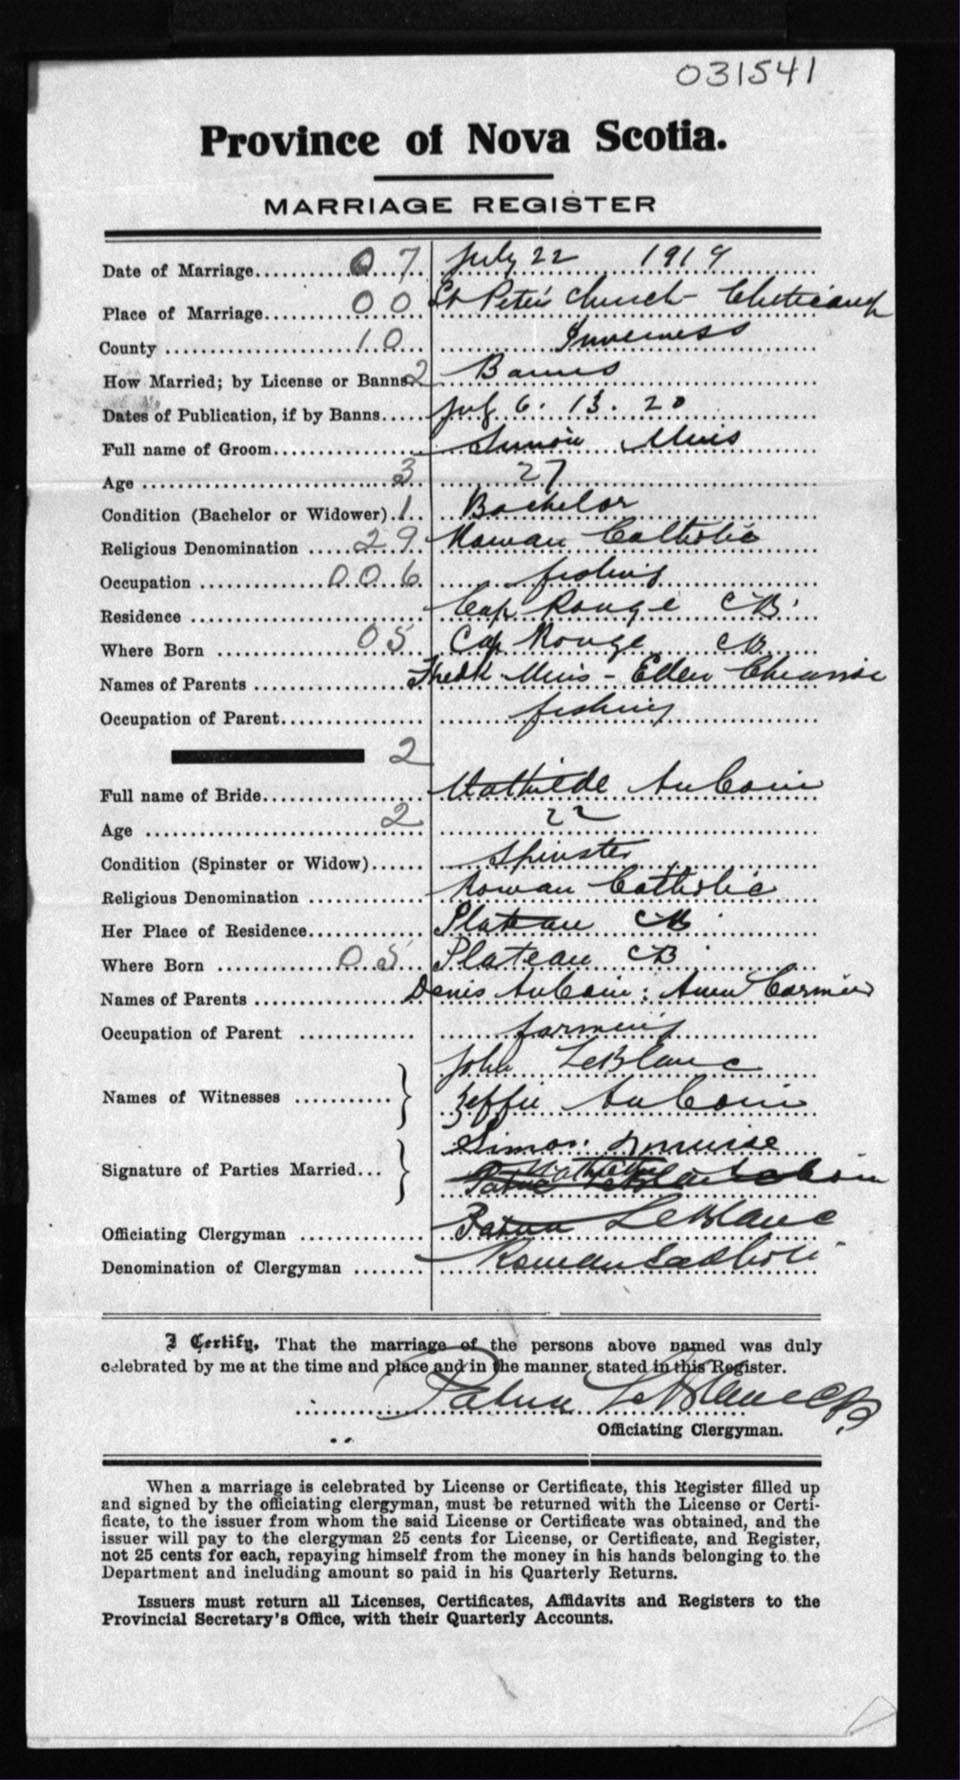 031541
Province of Nova Scotia.
MARRIAGE REGISTER
Date of Marriage 07 July 22 1919
Place of Marriage 00 St Peter's Church Cheticamp
County 10 Inverness
How Married; by License or Banns 2 Banns
Dates of Publication, if by Banns July 6. 13. 20
Full name of Groom Simon Muis
Age 3 27
Condition (Bachelor or Widower) 1 Bachelor
Religious Denomination 29 Roman Catholic
Occupation 006 fishing
Residence Cap Rouge CB
Where Born 05 Cap Rouge CB
Names of Parents Fredk Muis - Ellen
Occupation of Parent fishing
2
Full name of Bride Mathilde AuCoin
Age 2 22
Condition (Spinster or Widow) Spinster
Religious Denomination Roman Catholic
Her Place of Residence Plateau CB
Where Born 05 Plateau CB
Names of Parents Denis AuCoin: Ann Cormier
Occupation of Parent farming
John LeBlanc
Names of Witnesses
Zeffie AuCoin
Simon
Signature of Parties Married
Officiating Clergyman LeBlanc
Denomination of Clergyman Roman
I Certify, That the marriage of the persons above named was duly
celebrated by me at the time and place and in the manner stated in this Register.
LeBlanc
Officiating Clergyman.
When a marriage is celebrated by License or Certificate, this Register filled up
and signed by the officiating clergyman, must be returned with the License or Certi-
ficate, to the issuer from whom the said License or Certificate was obtained, and the
issuer will pay to the clergyman 25 cents for License, or Certificate, and Register,
not 25 cents for each, repaying himself from the money in his hands belonging to the
Department and including amount so paid in his Quarterly Returns.
Issuers must return all Licenses, Certificates, Affidavits and Registers to the
Provincial Secretary's Office, with their Quarterly Accounts.